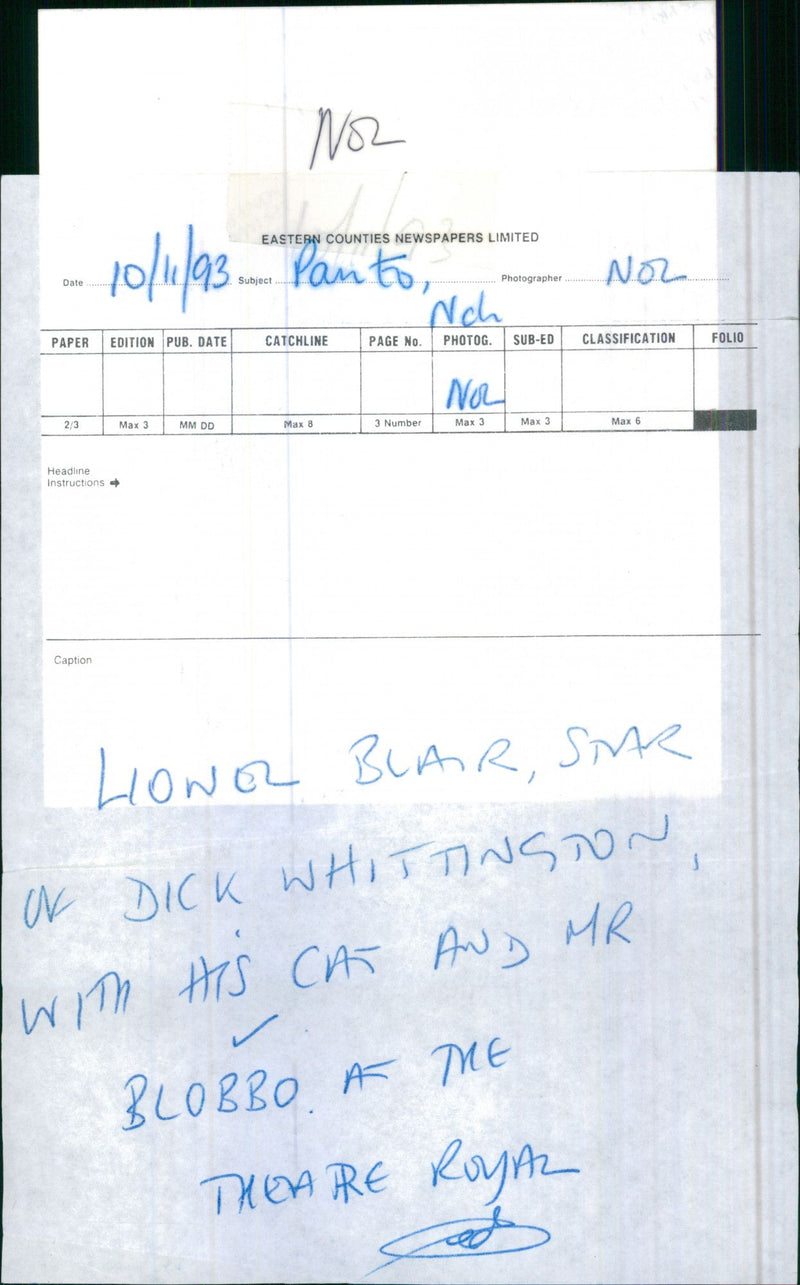 NOL
EASTERN COUNTIES NEWSPAPERS LIMITED
Date 10/11/93 Subject Panto, Nch Photographer NOL
PAPER EDITION PUB. DATE CATCHLINE PAGE No. PHOTOG. SUB-ED CLASSIFICATION FOLIO
NOL
2/3 Max 3 MM DD Max 8 3 Number Max 3 Max 3 Max 6
Headline
Instructions
Caption
LIONEL BLAIR, STAR
OF DICK WHITTINGTON,
WITH HIS CAT AND MR
BLOBBO. AT THE
THEATRE ROYAL